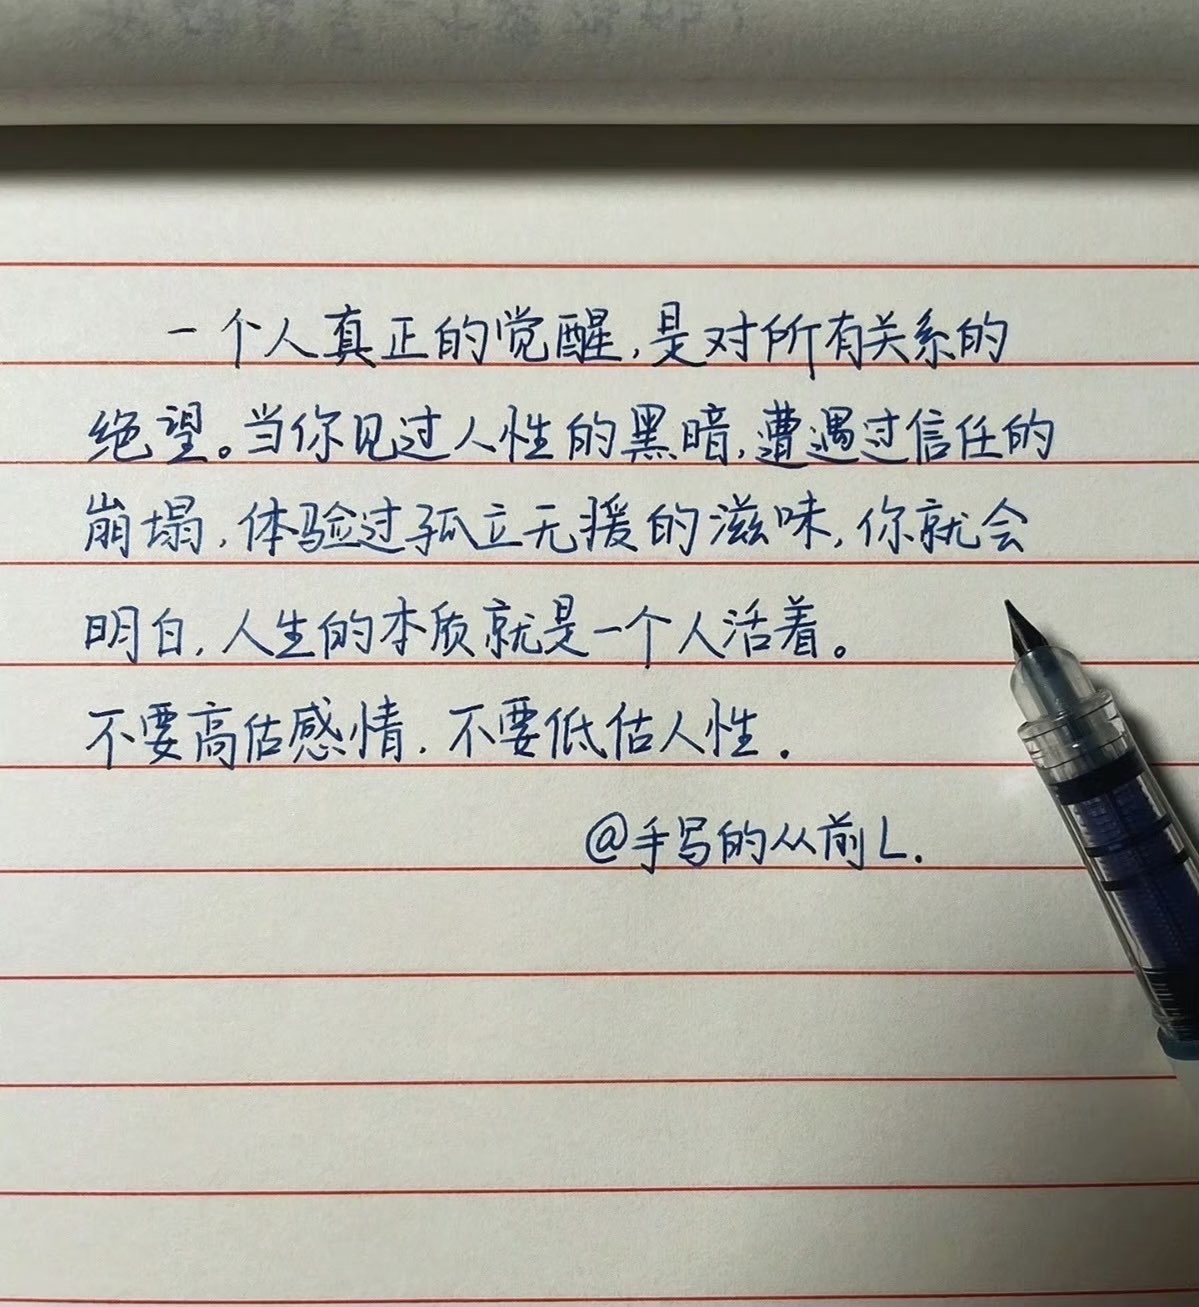 一个人真正的觉醒,是对所有关系的
绝望。当你见过人性的黑暗,遭遇过信任的
崩塌,体验过孤立无援的滋味,你就会
明白,人生的本质就是一个人活着。
不要高估感情.不要低估人性.
@手写的从前L.